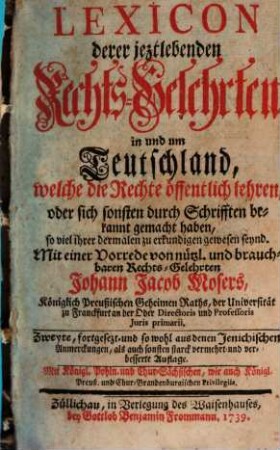 LEXICON
derer jeztlebenden
Rechts-Gelehrten
in und um
Teutschland,
welche die Rechte öffentlich lehren,
oder sich sonsten durch Schrifften be-
kannt gemacht haben,
so viel ihrer dermalen zu erkundigen gewesen seynd.
Mit einer Vorrede von nützl. und brauch-
baren Rechts-Gelehrten
Johann Jacob Mosers,
Königlich Preußischen Geheimen Raths, der Universität
zu Franckfurt an der Oder Directoris und Professoris
Juris primarii,
Zweyte, fortgesezt-und so wohl aus denen Jenichischen
Anmerckungen, als auch sonsten starck vermehrt-und ver-
besserte Auflage.
Mit Königl. Pohln. und Chur-Sächsischen, wie auch Königl.
Preuß. und Chur-Brandenburgischen Privilegiis.
Züllichau, in Verlegung des Waisenhauses,
bey Gottlob Benjamin Frommann. 1739.